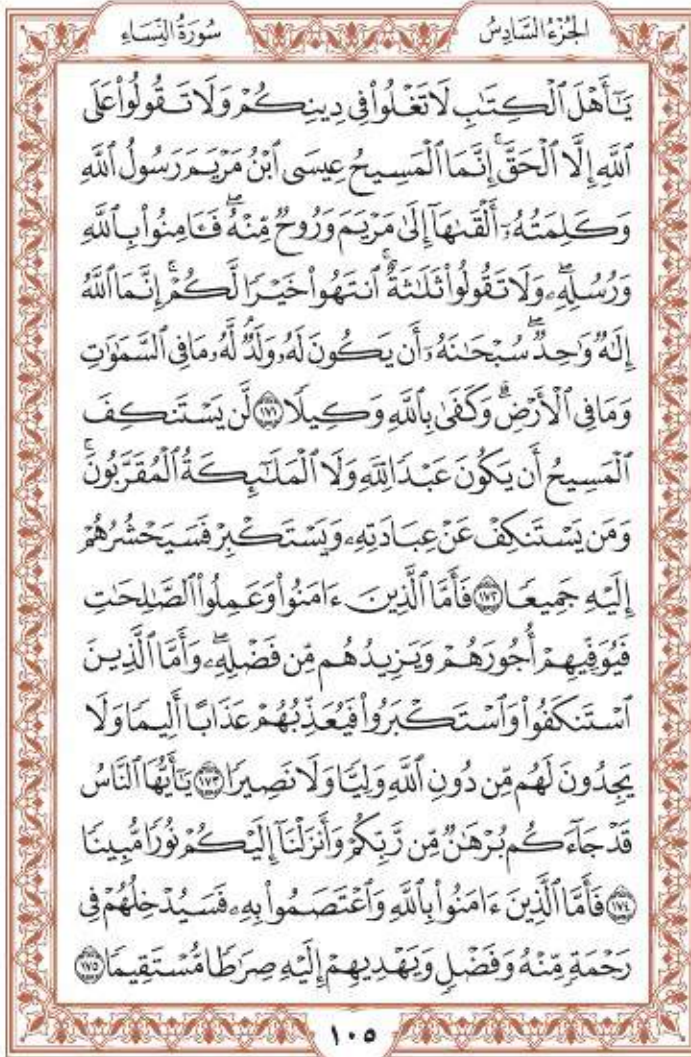 الجُزْءُ السَّادِسُ
سُورَةُ النِّسَاءِ
يَٰٓأَهۡلَ ٱلۡكِتَٰبِ لَا تَغۡلُواْ فِي دِينِكُمۡ وَلَا تَقُولُواْ عَلَى
ٱللَّهِ إِلَّا ٱلۡحَقَّۚ إِنَّمَا ٱلۡمَسِيحُ عِيسَى ٱبۡنُ مَرۡيَمَ رَسُولُ ٱللَّهِ
وَكَلِمَتُهُۥٓ أَلۡقَىٰهَآ إِلَىٰ مَرۡيَمَ وَرُوحٞ مِّنۡهُۖ فَـَٔامِنُواْ بِٱللَّهِ
وَرُسُلِهِۦۖ وَلَا تَقُولُواْ ثَلَٰثَةٌۚ ٱنتَهُواْ خَيۡرٗا لَّكُمۡۚ إِنَّمَا ٱللَّهُ
إِلَٰهٞ وَٰحِدٞۖ سُبۡحَٰنَهُۥٓ أَن يَكُونَ لَهُۥ وَلَدٞۘ لَّهُۥ مَا فِي ٱلسَّمَٰوَٰتِ
وَمَا فِي ٱلۡأَرۡضِۗ وَكَفَىٰ بِٱللَّهِ وَكِيلٗا ١٧١ لَّن يَسۡتَنكِفَ
ٱلۡمَسِيحُ أَن يَكُونَ عَبۡدٗا لِّلَّهِ وَلَا ٱلۡمَلَٰٓئِكَةُ ٱلۡمُقَرَّبُونَۚ
وَمَن يَسۡتَنكِفۡ عَنۡ عِبَادَتِهِۦ وَيَسۡتَكۡبِرۡ فَسَيَحۡشُرُهُمۡ
إِلَيۡهِ جَمِيعٗا ١٧٢ فَأَمَّا ٱلَّذِينَ ءَامَنُواْ وَعَمِلُواْ ٱلصَّٰلِحَٰتِ
فَيُوَفِّيهِمۡ أُجُورَهُمۡ وَيَزِيدُهُم مِّن فَضۡلِهِۦۖ وَأَمَّا ٱلَّذِينَ
ٱسۡتَنكَفُواْ وَٱسۡتَكۡبَرُواْ فَيُعَذِّبُهُمۡ عَذَابًا أَلِيمٗا وَلَا
يَجِدُونَ لَهُم مِّن دُونِ ٱللَّهِ وَلِيّٗا وَلَا نَصِيرٗا ١٧٣ يَٰٓأَيُّهَا ٱلنَّاسُ
قَدۡ جَآءَكُم بُرۡهَٰنٞ مِّن رَّبِّكُمۡ وَأَنزَلۡنَآ إِلَيۡكُمۡ نُورٗا مُّبِينٗا
١٧٤ فَأَمَّا ٱلَّذِينَ ءَامَنُواْ بِٱللَّهِ وَٱعۡتَصَمُواْ بِهِۦ فَسَيُدۡخِلُهُمۡ فِي
رَحۡمَةٖ مِّنۡهُ وَفَضۡلٖ وَيَهۡدِيهِمۡ إِلَيۡهِ صِرَٰطٗا مُّسۡتَقِيمٗا ١٧٥
١٠٥